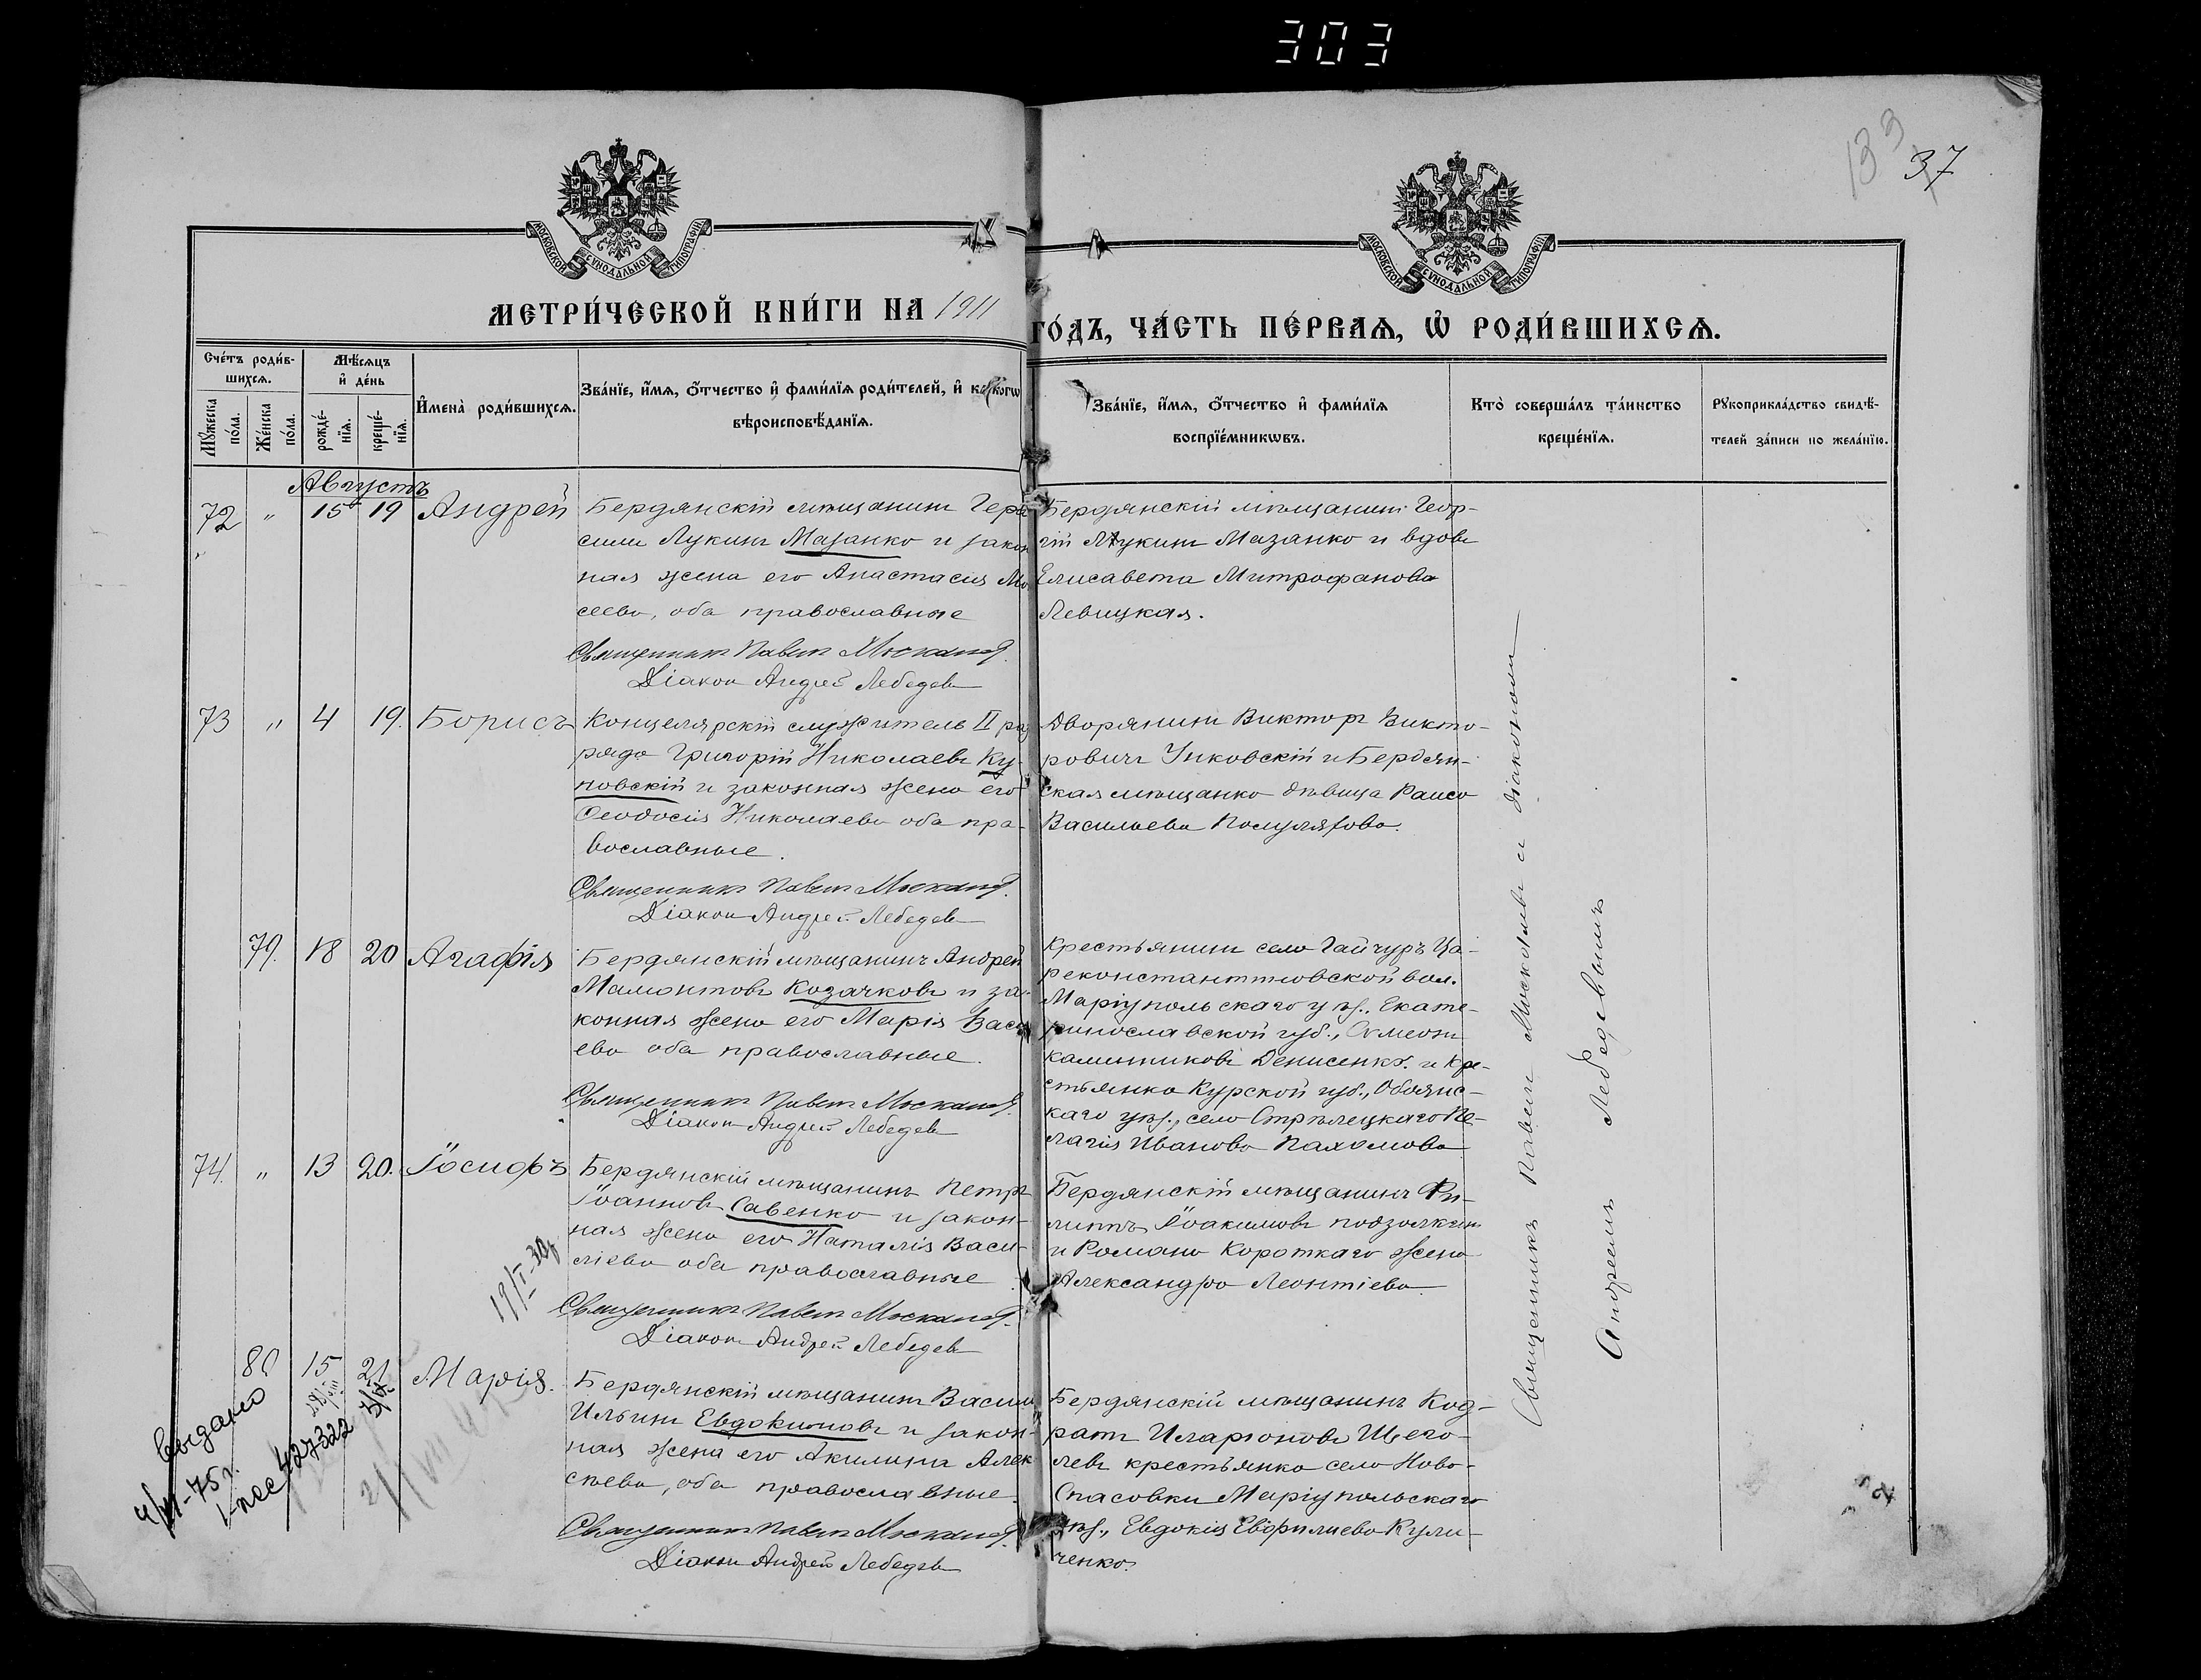 303
133
37
МОСКОВСКОЙ СѴНОДАЛЬНОЙ ТИПОГРАФІИ
МОСКОВСКОЙ СѴНОДАЛЬНОЙ ТИПОГРАФІИ
МЕТРИ́ЧЕСКОЙ КНИ́ГИ НА 1911
ГО́ДЪ, ЧА́СТЬ ПЕ́РВАѦ, Ѡ҆ РОДИ́ВШИХСѦ.
Сче́тъ роди́в-
шихсѧ.
Мѣ́сѧцъ
и҆ де́нь
Мꙋ́жеска
по́ла.
Же́нска
по́ла.
рожде́-
нїѧ.
креще́-
нїѧ.
И҆мена̀ роди́вшихсѧ.
Зва́нїе, и҆́мѧ, ѻ҆́тчество и҆ фами́лїѧ роди́телей, и҆ како́гѡ
вѣроисповѣ́данїѧ.
Зва́нїе, и҆́мѧ, ѻ҆́тчество и҆ фами́лїѧ
воспрїе́мникѡвъ.
Кто̀ соверша́лъ та́инство
креще́нїѧ.
Рꙋкоприкла́дство свидѣ́-
телей за́писи по жела́нїю.
Августъ
72 " 15 19 Андрей
Бердянскій мѣщанинъ Гера
симъ Лукинъ Мазанко и закон
ная жена его Анастасія Мо
сеева, оба православные
Священникъ Павелъ
Діаконъ Андрей Лебедевъ
Бердянскій мѣщанинъ Геор-
гій Лукинъ Мазанко и вдова
Елисавета Митрофанова
Левицкая.
73 " 4 19. Борисъ
Концелярскій служитель II раз
ряда Григорій Николаевъ Ку-
новскій и законная жена его
Ѳеодосія Николаева оба пра-
вославные.
Священникъ Павелъ
Діаконъ Андрей Лебедевъ
Дворянинъ Викторъ Викто-
ровичъ Унковскій и Бердян-
ская мѣщанка дѣвица Раиса
Васильева
79. 18 20 Агафія
Бердянскій мѣщанинъ Андрей
Мамонтовъ Козачковъ и за-
конная жена его Марія Васи
ева оба православные.
Священникъ Павелъ
Діаконъ Андрей Лебедевъ
Крестьянинъ села Гайчуръ Ца-
реконстантиновской вол.
Маріупольскаго уѣз., Екате-
ринославской губ., Симеонъ
Калинниковъ Денисенко. и кре-
стьянка Курской губ., Обоянс-
каго уѣз., села Стрѣлецкаго Пе-
лагія Иванова Пахомова
74. " 13 20. Іосифъ
Бердянскій мѣщанинъ Петръ
Іоанновъ Савенко и закон-
ная жена его Наталія Васи-
ліева оба православные.
19/I-30г
Священникъ Павелъ
Діаконъ Андрей Лебедевъ
Бердянскій мѣщанинъ Фи-
липпъ Іоакимовъ
и Романа Короткаго жена
Александра Леонтіева.
80 15 21 Марія.
Бердянскій мѣщанинъ Васили
Ильинъ Евдокимовъ и закон-
ная жена его Акилина Алек
сѣева, оба православные.
Священникъ Павелъ
Діаконъ Андрей Лебедевъ
Бердянскій мѣщанинъ Код-
ратъ Иларіоновъ Щего-
левъ крестьянка села Ново-
Спасовки Маріупольскаго
уѣз., Евдокія Кули-
ченко.
Выдано
4/VI-75г.
427322
Священникъ Павелъ и діакономъ
Андреемъ Лебедевымъ